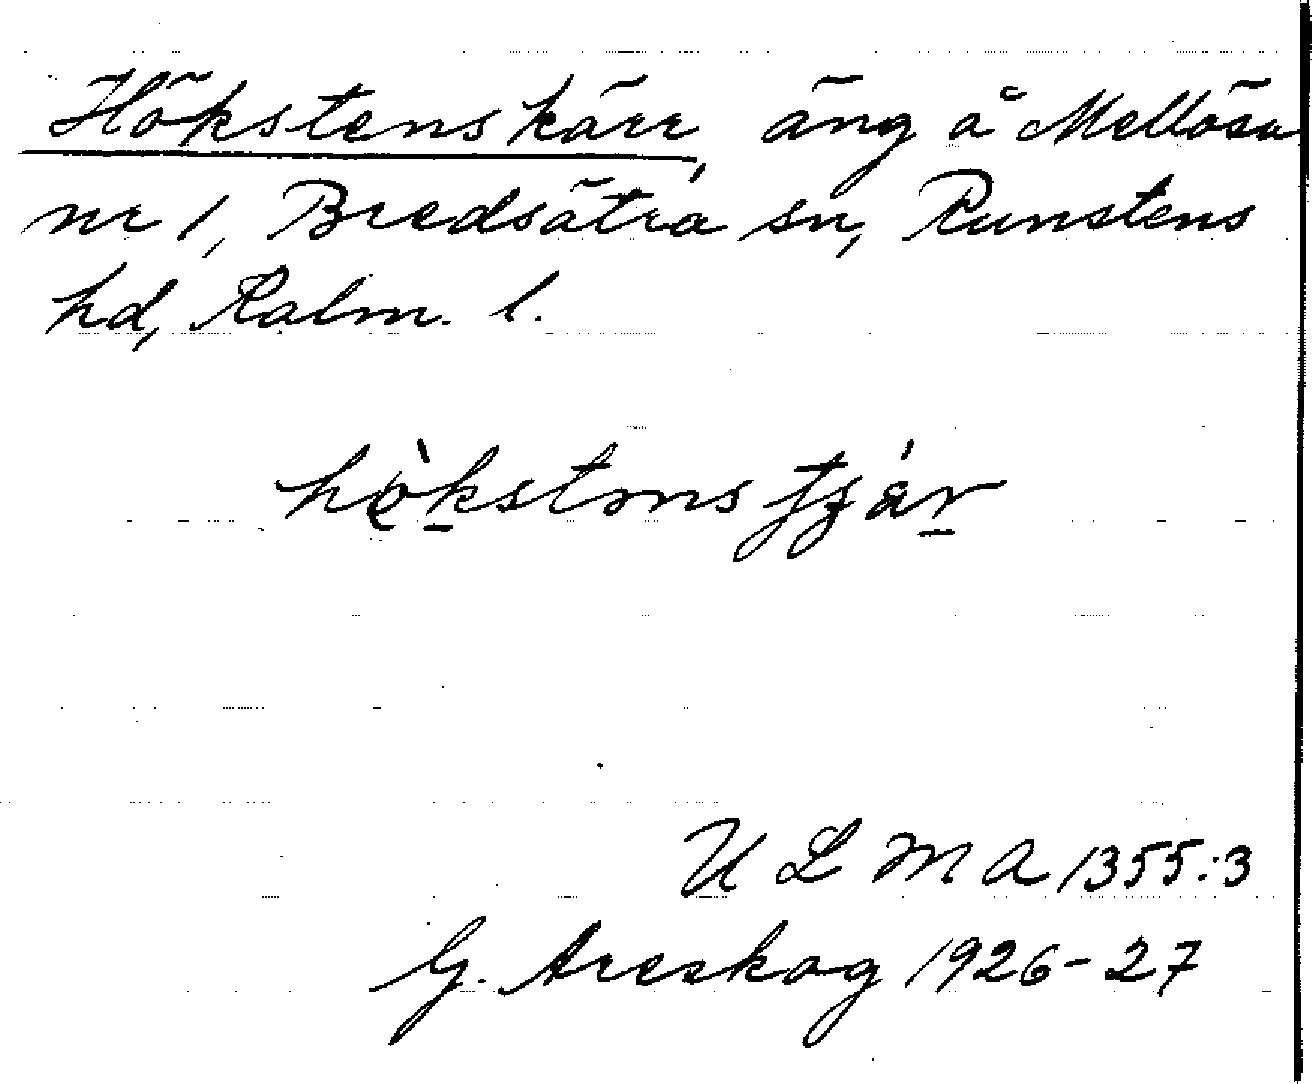 Hökstenskärr, äng å Mellösa
nr 1, Bredsätra sn, Runstens
hd, Kalm. l.
U L M A 1355:3
G. Areskog 1926-27